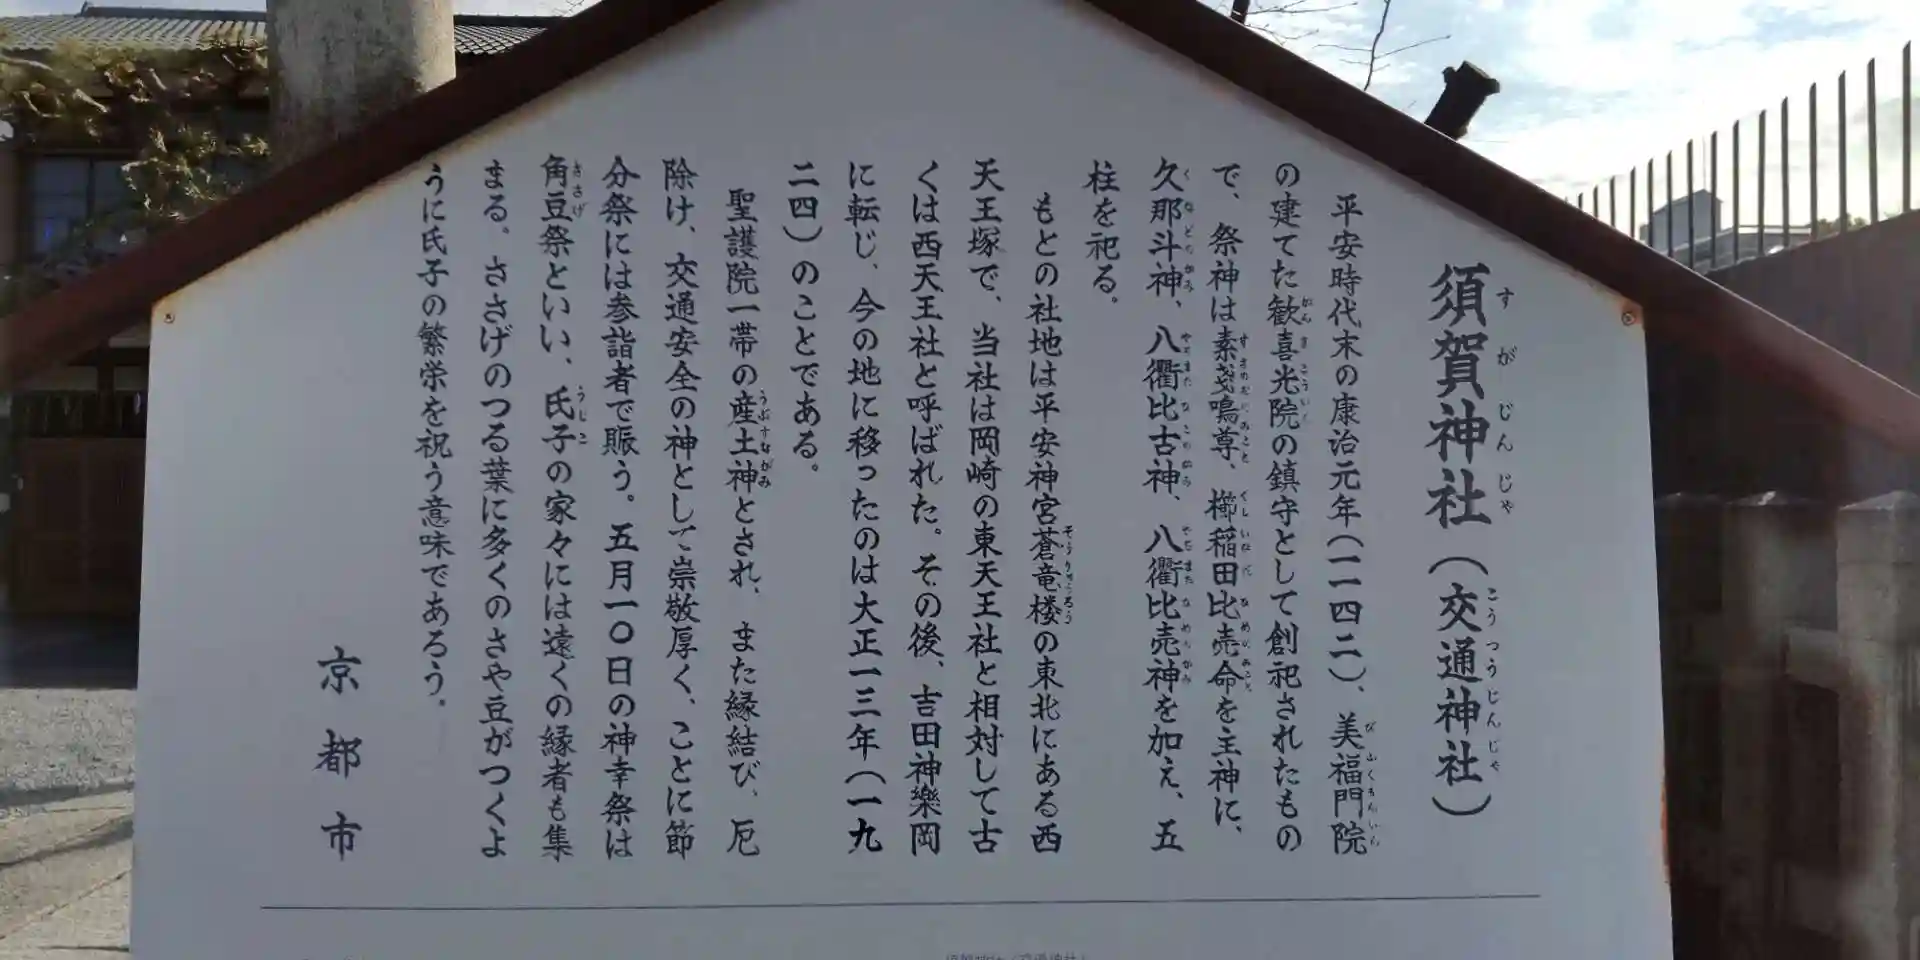 須賀神社（交通神社）
平安時代末の康治元年（一一四二）、美福門院
の建てた歓喜光院の鎮守として創祀されたもの
で、祭神は素戔嗚尊、櫛稲田比売命を主神に、
久那斗神、八衢比古神、八衢比売神を加え、五
柱を祀る。
もとの社地は平安神宮蒼竜楼の東北にある西
天王塚で、当社は岡崎の東天王社と相対して古
くは西天王社と呼ばれた。その後、吉田神樂岡
に転じ、今の地に移ったのは大正一三年（一九
二四）のことである。
聖護院一帯の産土神とされ、また縁結び、厄
除け、交通安全の神として崇敬厚く、ことに節
分祭には参詣者で賑う。五月一〇日の神幸祭は
角豆祭といい、氏子の家々には遠くの縁者も集
まる。ささげのつる葉に多くのさや豆がつくよ
うに氏子の繁栄を祝う意味であろう。
京都市